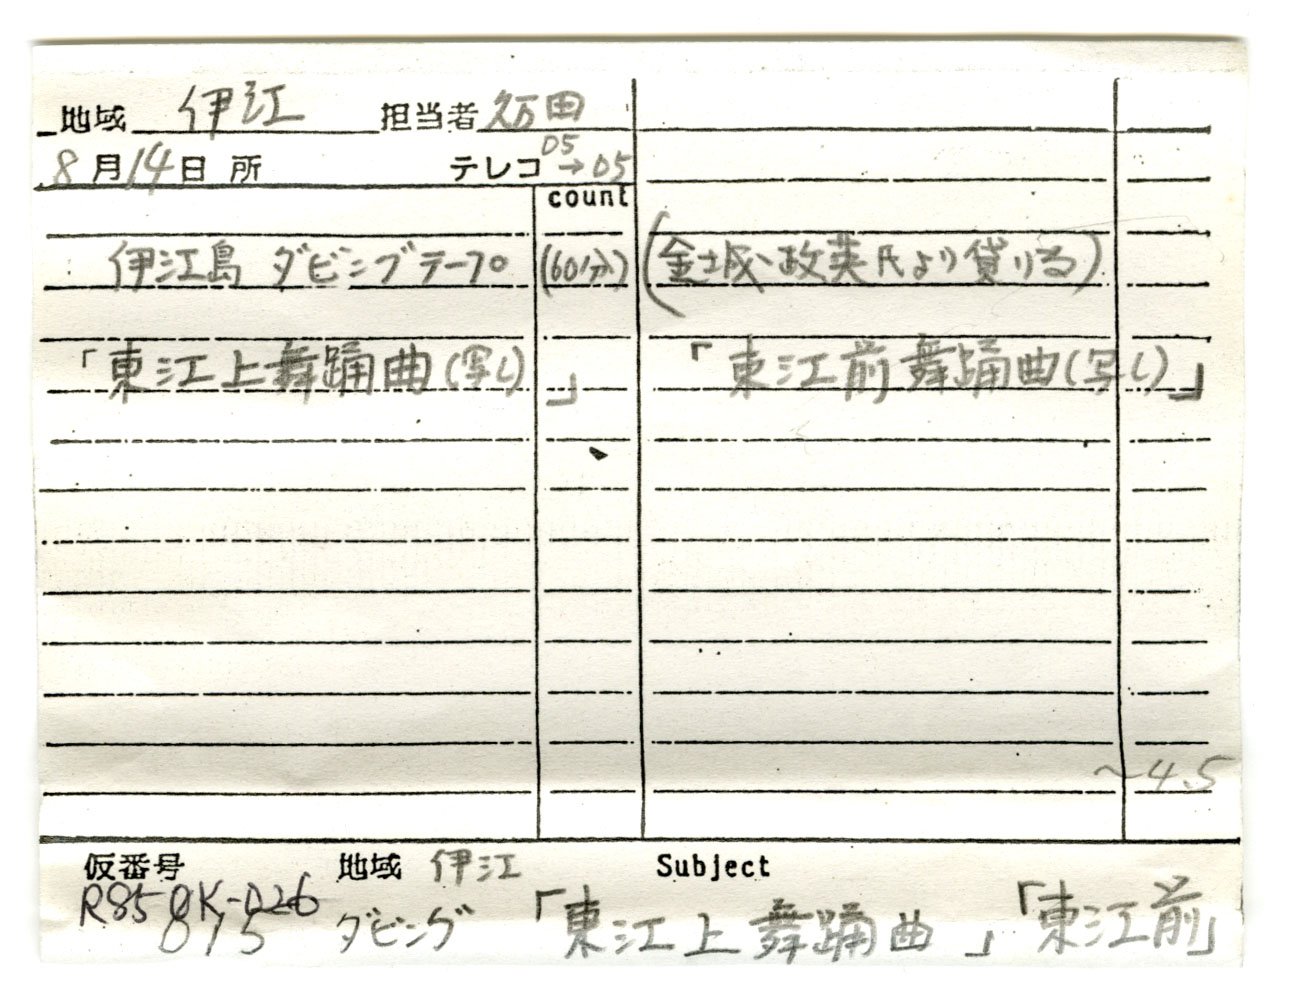 地域 伊江 担当者 久万田
8月14日 所 テレコ D5→D5
count
伊江島 ダビングテープ (60分) (金城政英氏より貸りる)
「東江上舞踊曲(写し)」 「東江前舞踊曲(写し)」
~4.5
仮番号 地域 伊江 Subject
R85OK-D26
015 ダビング 「東江上舞踊曲」 「東江前」